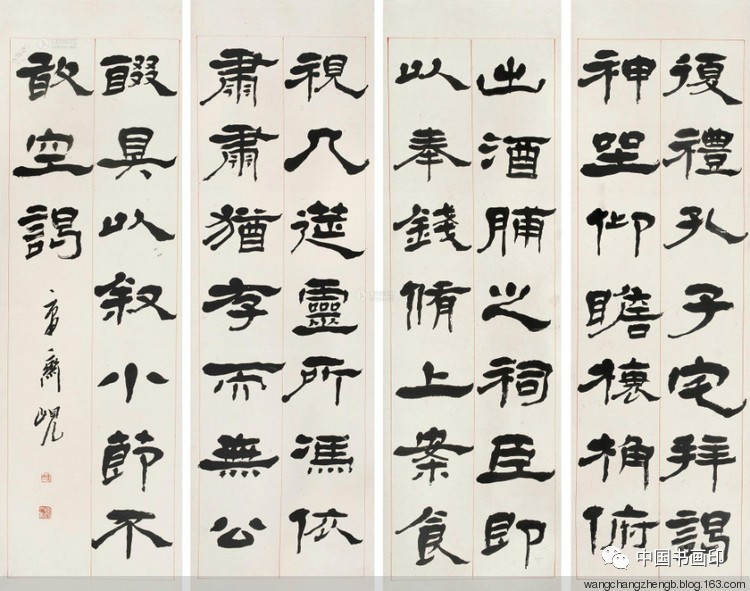 復禮孔子宅拜謁
神坐仰瞻榱桷俯
出酒脯之祠臣即
以奉錢脩上案食
視几筵靈所馮依
肅肅猶存而無公
餟具以叙小節不
敢空謁
中国书画印
wangchangzhengb.blog.163.com